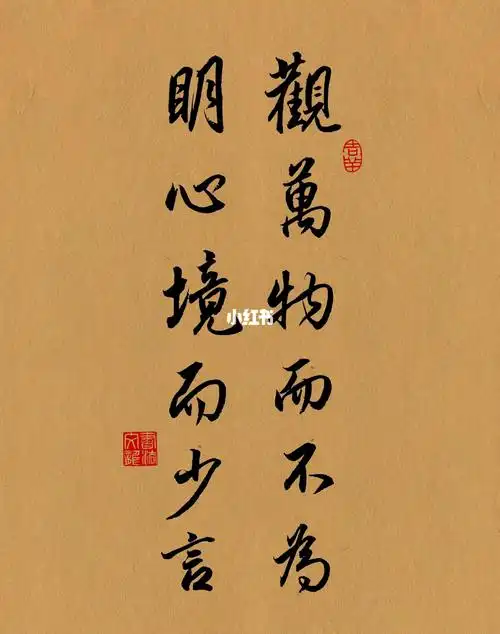 觀萬物而不為
明心境而少言
小红书